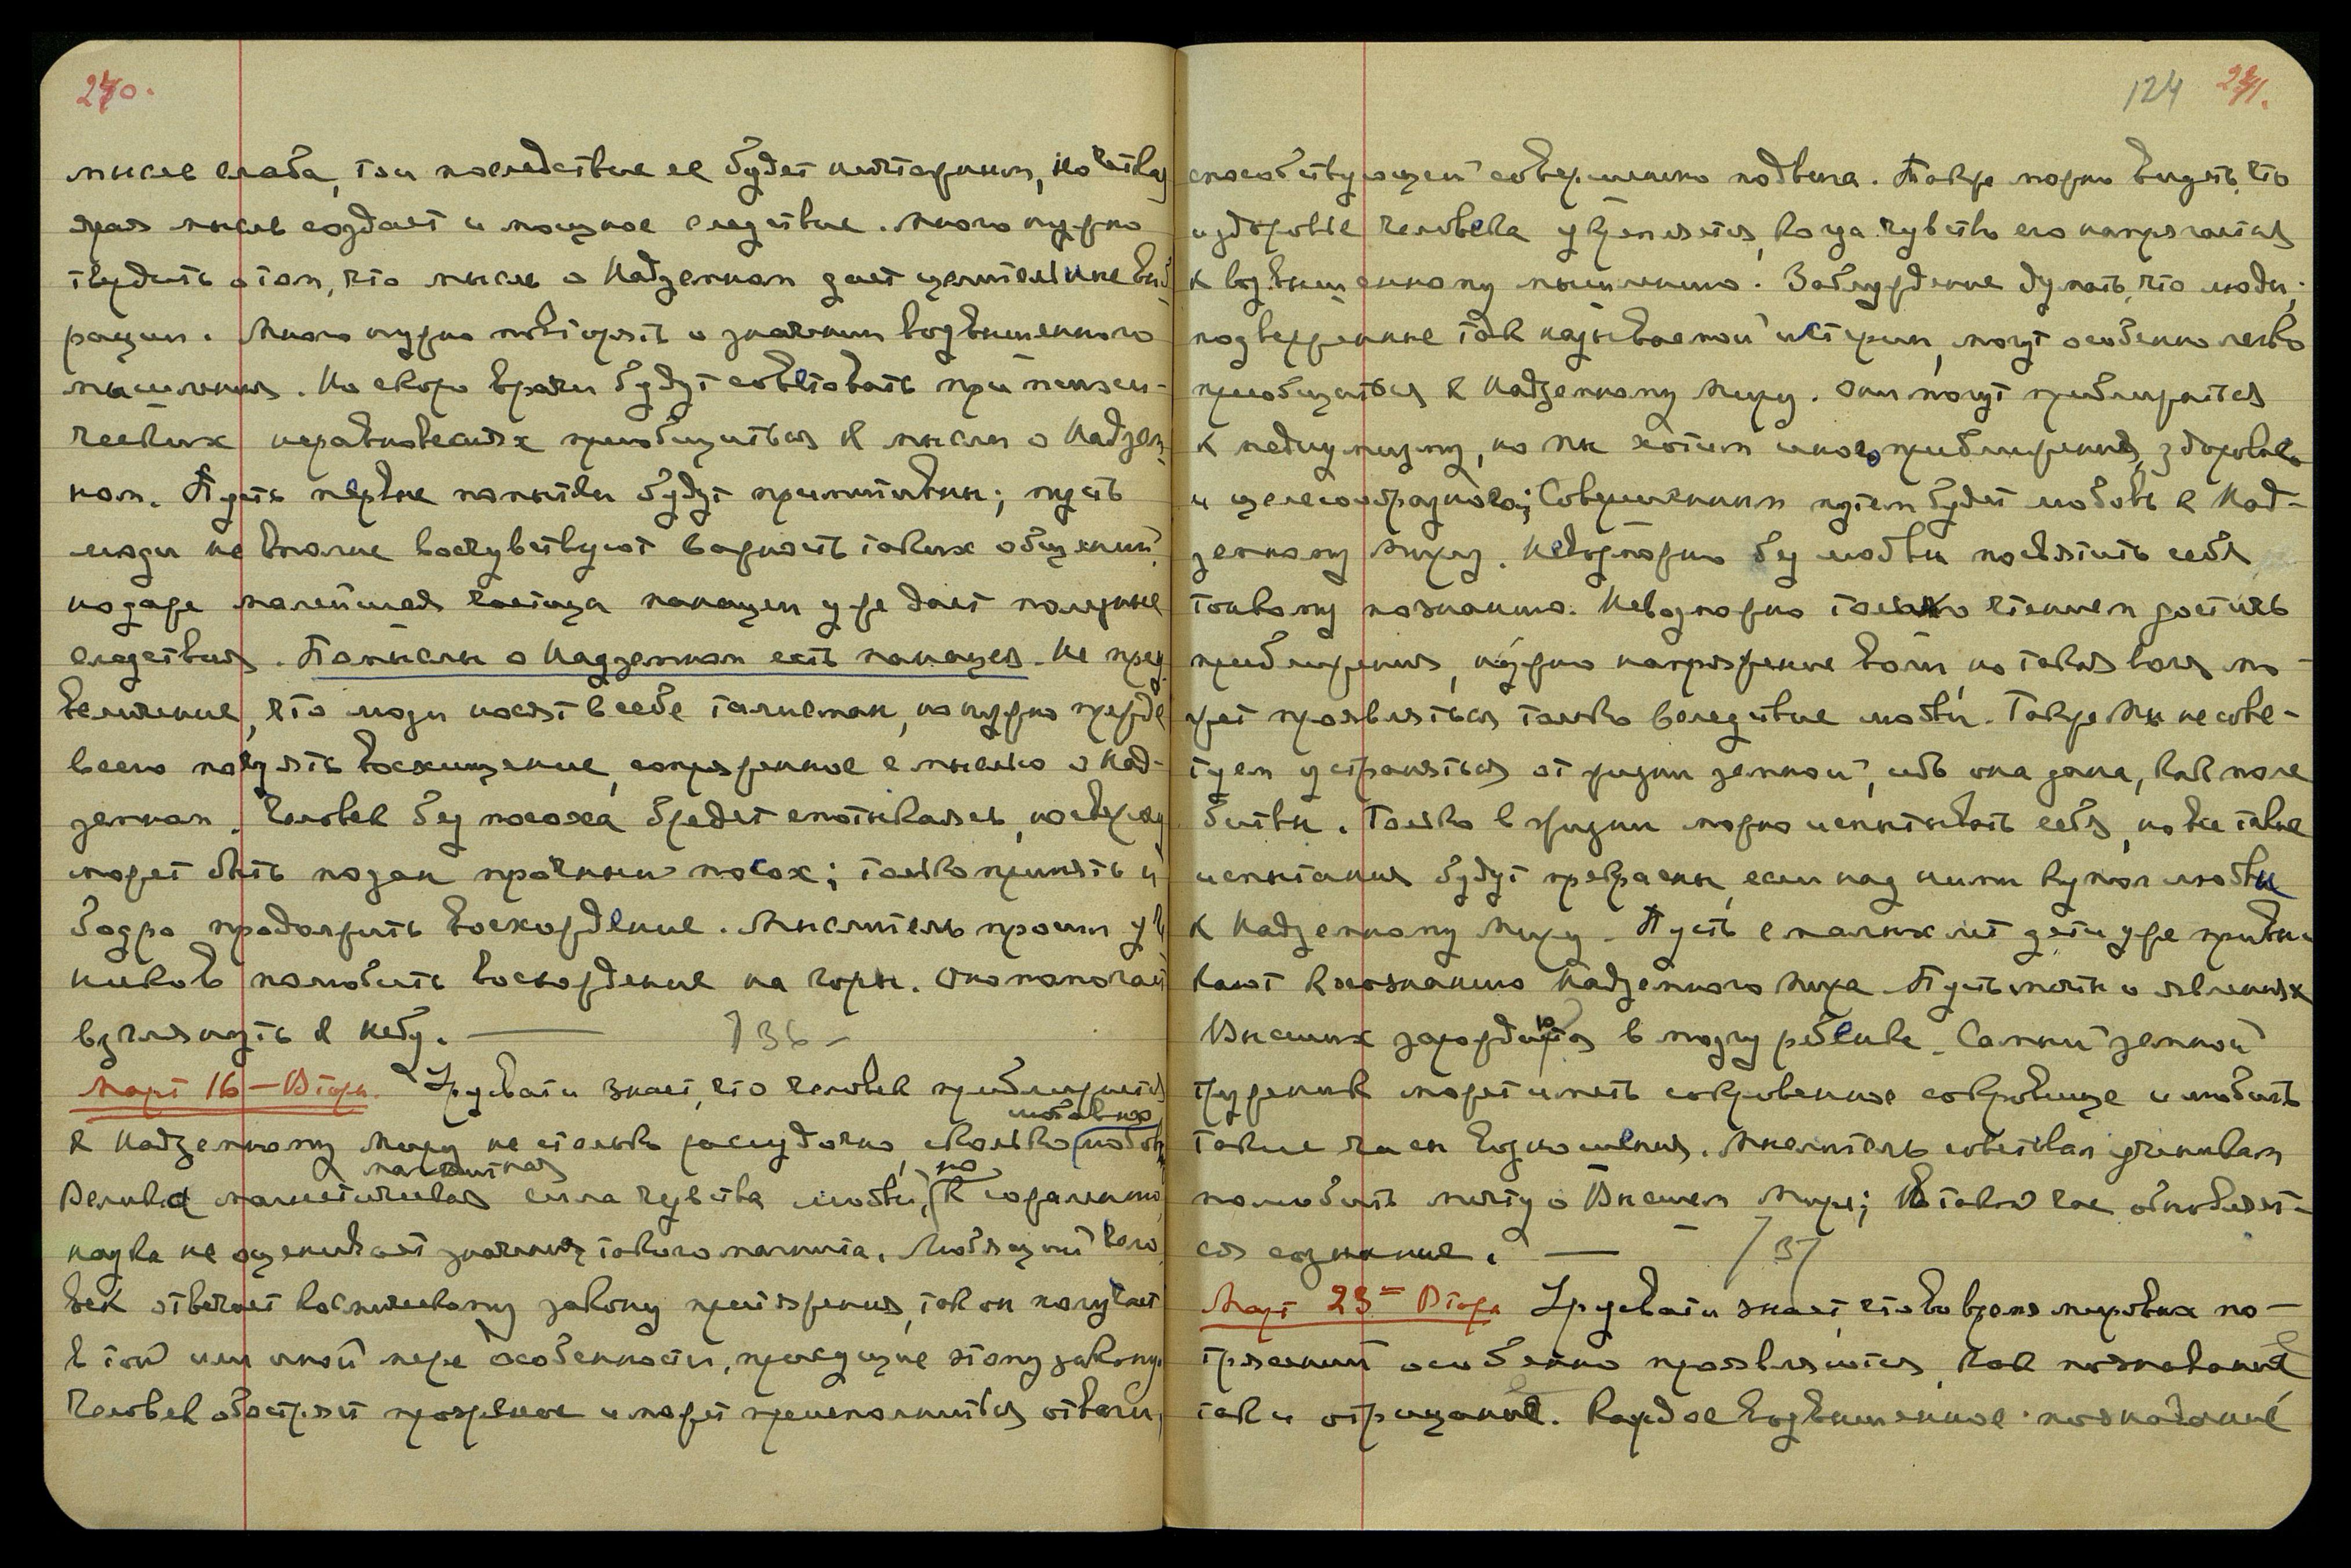 270.
мысль слаба, то и последствие ее будет ничтожным, но четкая
яркая мысль создает и мощное следствие. Много нужно
твердить о том, что мысль о Надземном дает целительные виб
рации. Много нужно повторять о значении возвышенного
мышления. Но скоро врачи будут советовать при психи-
ческих неравновесиях приобщиться к мысли о Надзем
ном. Пусть первые попытки будут примитивны; пусть
люди не вполне восчувствуют важность таких общений,
но даже малейшая частица панацеи уже дает полезные
следствия. Помыслы о Надземном есть панацея. Не преу
величение, что люди носят в себе талисман, но нужно прежде
всего получить восхищение, сопряженное с мыслью о Над-
земном. Человек без посоха бредет спотыкаясь, но сверху
может быть подан прочный посох; только принять и
бодро продолжить восхождение. Мыслитель просил уче
ников полюбить восхождение на горы. Оно помогает
взглянуть к небу. — 736 –
Март 16 – Вторн. Урусвати знает, что человек приближается
любовно
к Надземному Миру не столько рассудочно, сколько любов
магнитная но
Велика магнетическая сила чувства любви, к сожалению
наука не оценивает значения такого магнита. Любящий чело
век отвечает космическому закону притяжения, так он получает
в той или иной мере особенности, присущие этому закону.
Человек обостряет прозрение и может преисполниться отваги,
124 271.
способствующей совершению подвига. Также можно видеть, что
и здоровье человека укрепляется, когда чувство его напрягается
к возвышенному мышлению. Заблуждение думать, что люди,
подверженные так называемой истерии, могут особенно легко
приобщиться к Надземному Миру. Они могут приближаться
к медиумизму, но Мы хотим иного приближения, здорового
и целесообразного; Совершенным путем будет любовь к Над-
земному Миру. Невозможно без любви посвятить себя
тонкому познанию. Невозможно только чтением достичь
приближения, нужно напряжение воли, но такая воля мо-
жет проявляться только вследствие любви. Также Мы не сове-
туем устраняться от жизни земной, ибо она дана, как поле
битвы. Только в жизни можно испытывать себя, но все такие
испытания будут прекрасны, если над ними купол любви
к Надземному Миру. Пусть с малых лет дети уже привы
кают к осознанию Надземного Мира. Пусть мечты о явлениях
ю
Высших зародится в мозгу ребенка. Самый земной
труженик может иметь сокровенное сокровище и любить
такие часы возношения. Мыслитель советовал ученикам
полюбить мечту о Высшем Мире; В такой час обновляет-
ся сознание. — 737
Март 23 = Вторн Урусвати знает, что во время мировых по-
трясений особенно проявляются, как познавания
так и отрицание. Каждое возвышенное познавание